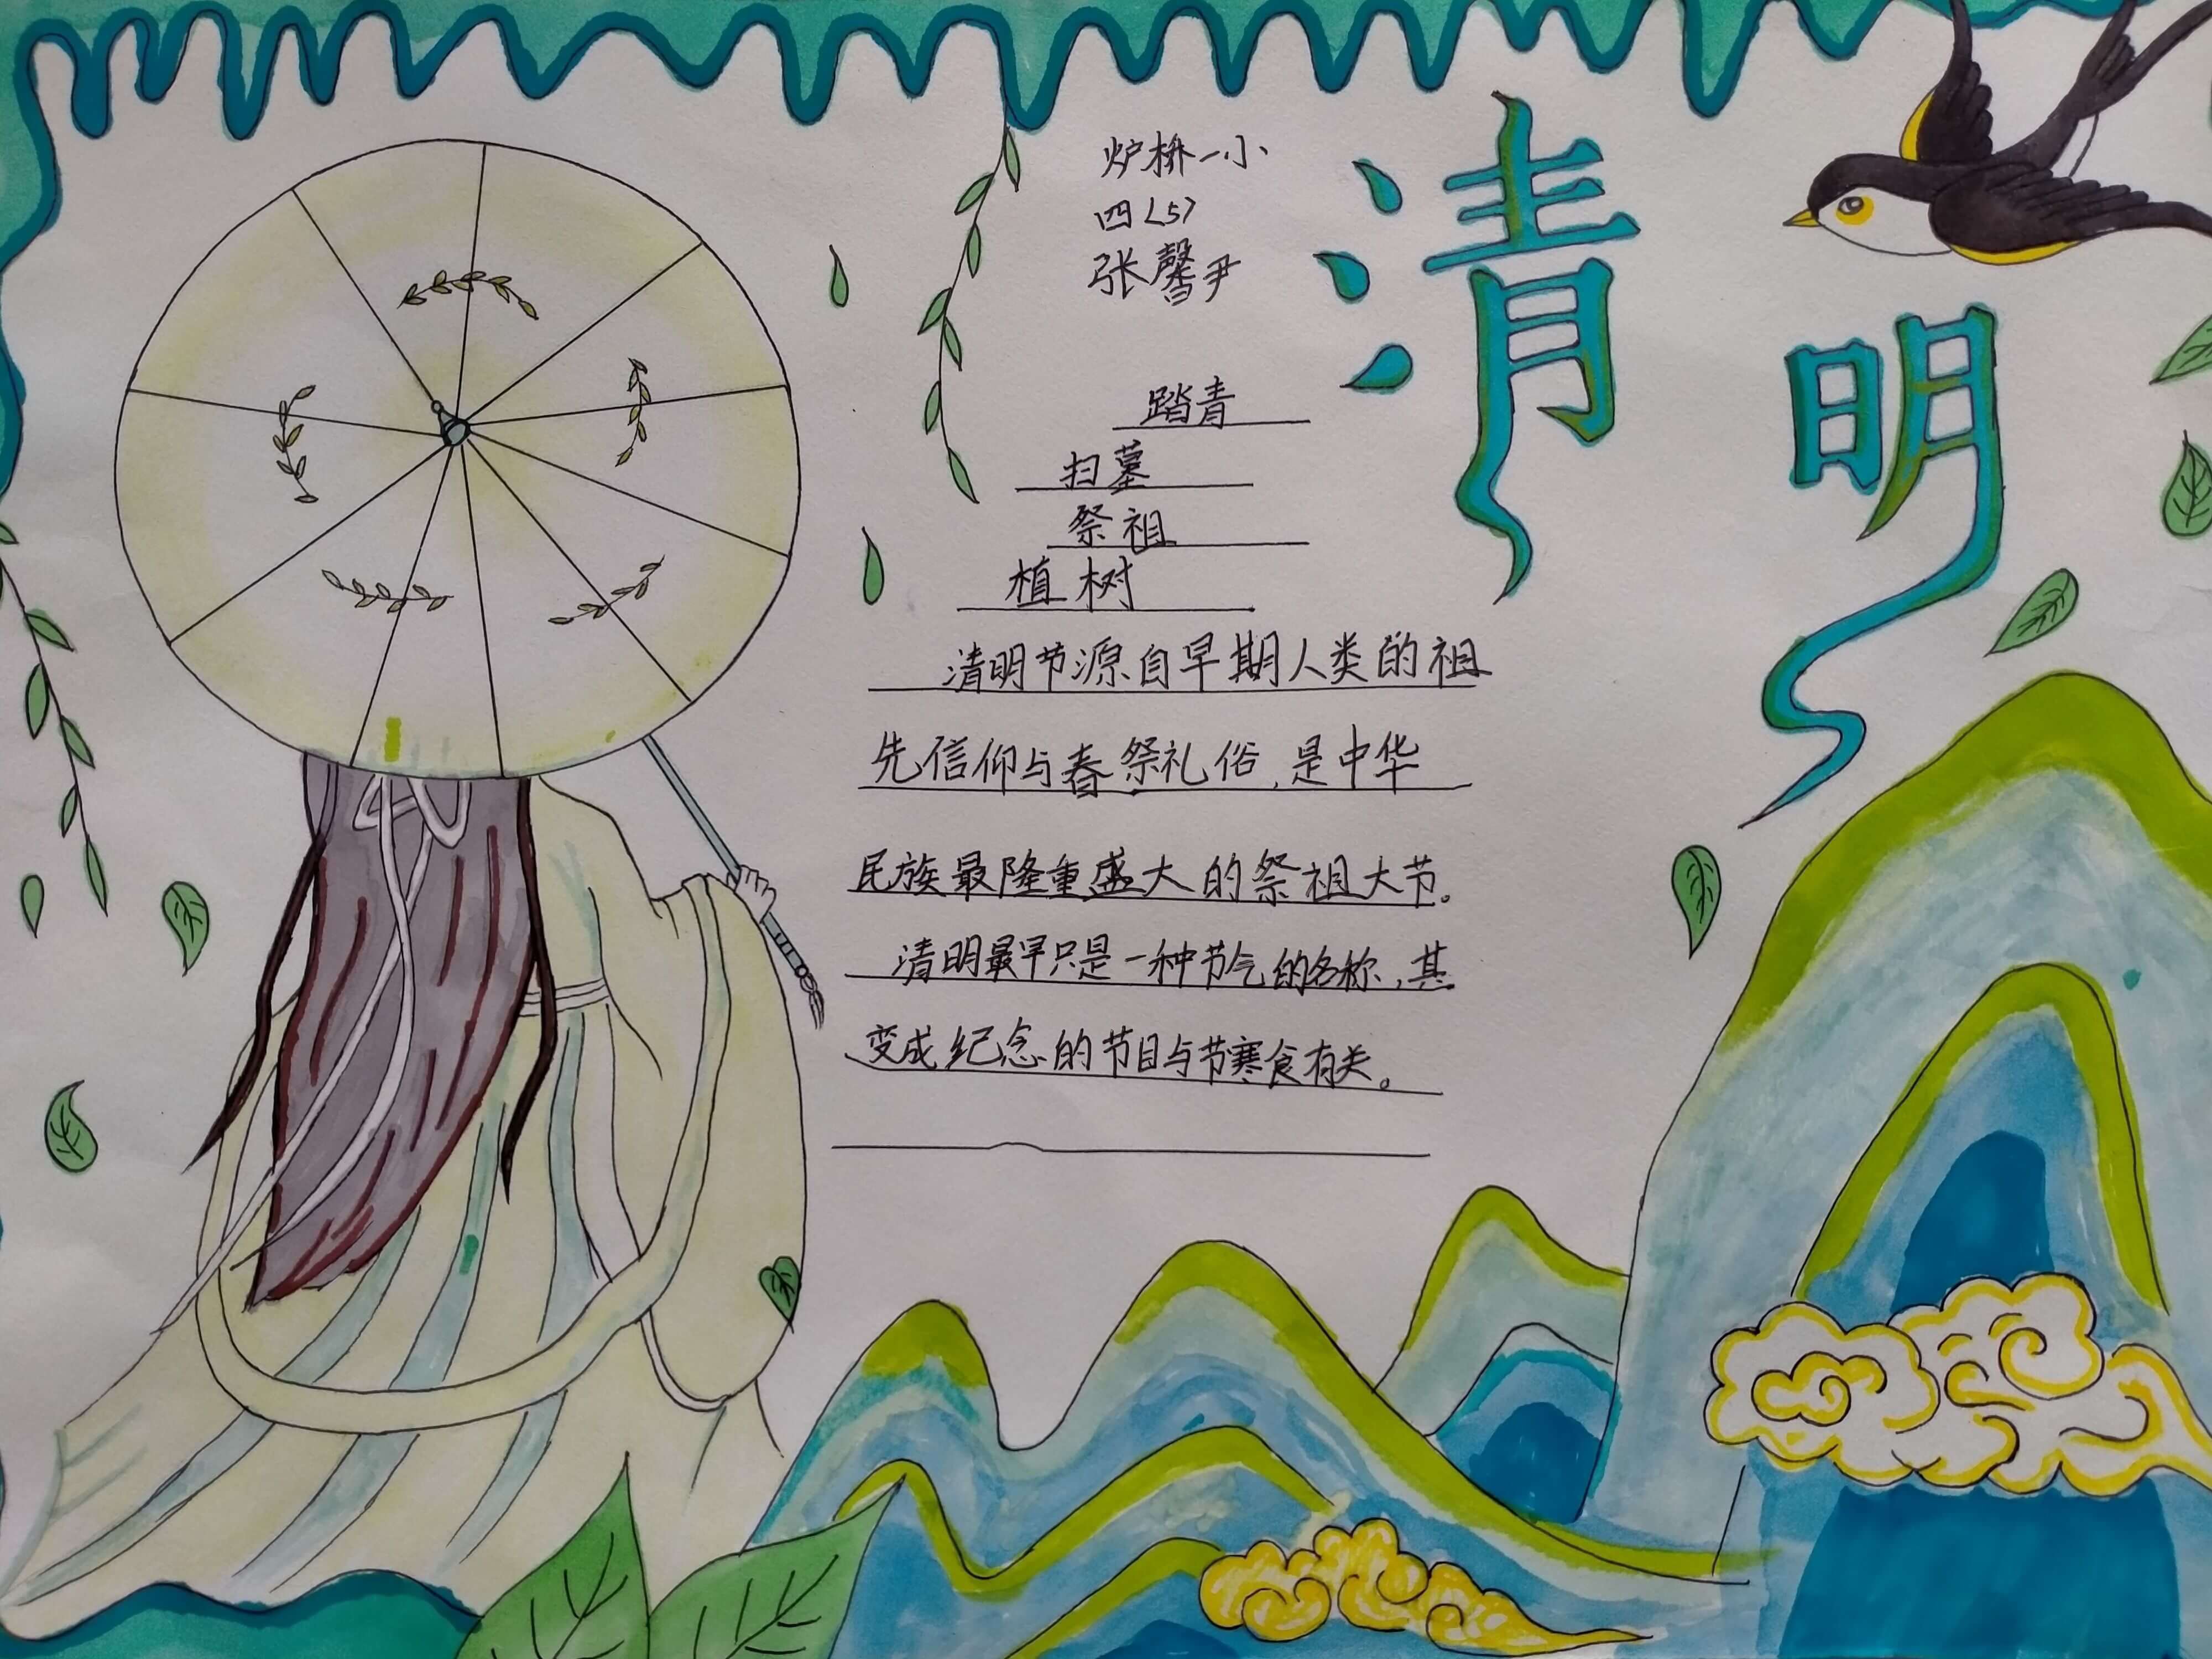 清明
炉桥一小
四〈5〉
张馨尹
踏青
扫墓
祭祖
植树
清明节源自早期人类的祖
先信仰与春祭礼俗,是中华
民族最隆重盛大的祭祖大节。
清明最早只是一种节气的名称,其
变成纪念的节目与节寒食有关。